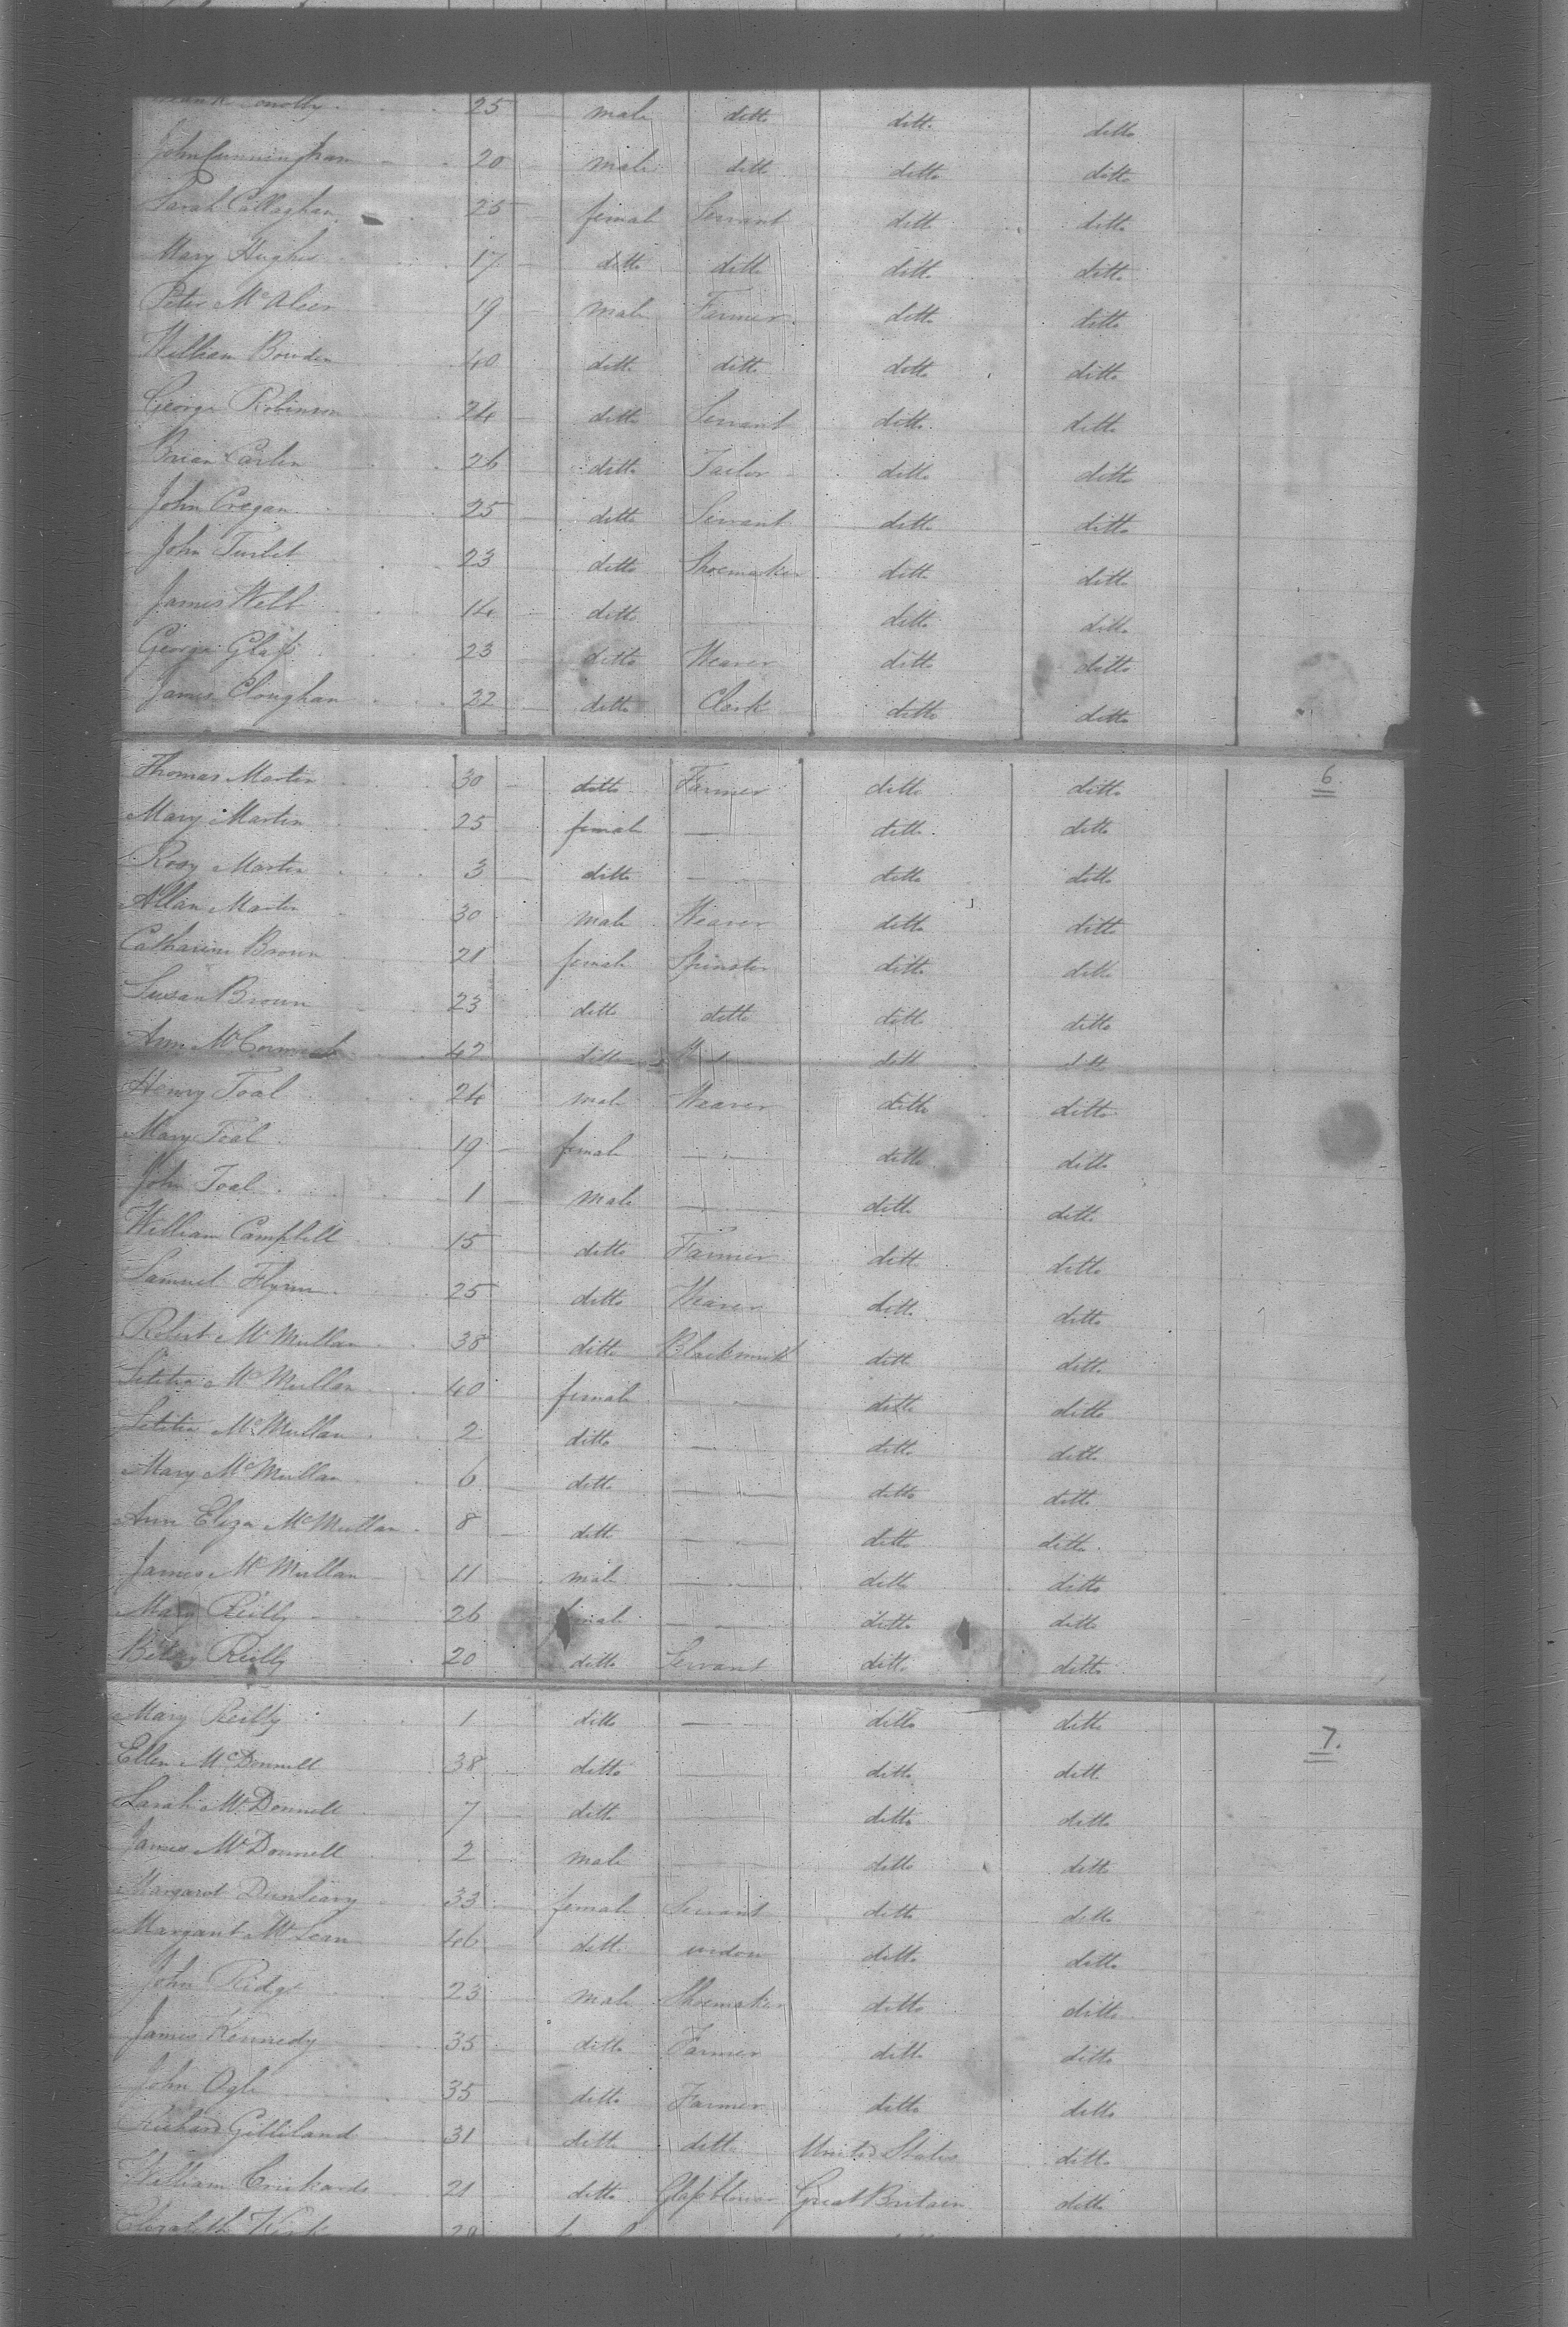 Conolly 25 male ditto ditto ditto
John Cunningham 20 male ditto ditto ditto
Sarah Callaghan 25 female Servant ditto ditto
Mary Hughes 17 ditto ditto ditto ditto
Peter McAleer 19 male Farmer ditto ditto
William Bowden 40 ditto ditto ditto ditto
George Robinson 24 ditto Servant ditto ditto
Brian Carlin 26 ditto Tailor ditto ditto
John Cregan 25 ditto Servant ditto ditto
John Turbet 23 ditto Shoemaker ditto ditto
James Webb 14 ditto — ditto ditto
George Glass 23 ditto Weaver ditto ditto
James Cloughan 22 ditto Clerk ditto ditto
Thomas Martin 30 ditto Farmer ditto ditto 6.
Mary Martin 25 female — ditto ditto
Rosy Martin 3 ditto — ditto ditto
Allan Martin 30 male Weaver ditto ditto
Catharine Brown 21 female Spinster ditto ditto
Susan Brown 23 ditto ditto ditto ditto
Ann McCormick 42 ditto ditto ditto
Henry Toal 24 male Weaver ditto ditto
Mary Toal 19 female — ditto ditto
John Toal 1 male — ditto ditto
William Campbell 15 ditto Farmer ditto ditto
Samuel Flynn 25 ditto Weaver ditto ditto
Robert McMullan 38 ditto Blacksmith ditto ditto
Letitia McMullan 40 female — ditto ditto
Letitia McMullan 2 ditto — ditto ditto
Mary McMullan 6 ditto — ditto ditto
Ann Eliza McMullan 8 ditto — ditto ditto
James McMullan 11 male — ditto ditto
Mary Reilly 26 female — ditto ditto
Betsy Reilly 20 ditto Servant ditto ditto
Mary Reilly 1 ditto — ditto ditto 7.
Ellen McDonnell 38 ditto — ditto ditto
Sarah McDonnell 7 ditto — ditto ditto
James McDonnell 2 male — ditto ditto
Margaret Dunleavy 33 female Servant ditto ditto
Margaret McLean 46 ditto widow ditto ditto
John Ridge 23 male Shoemaker ditto ditto
James Kennedy 35 ditto Farmer ditto ditto
John Ogle 35 ditto Farmer ditto ditto
Richard Gilliland 31 ditto ditto United States ditto
William Crickard 21 ditto Glassblower Great Britain ditto
Elizabeth